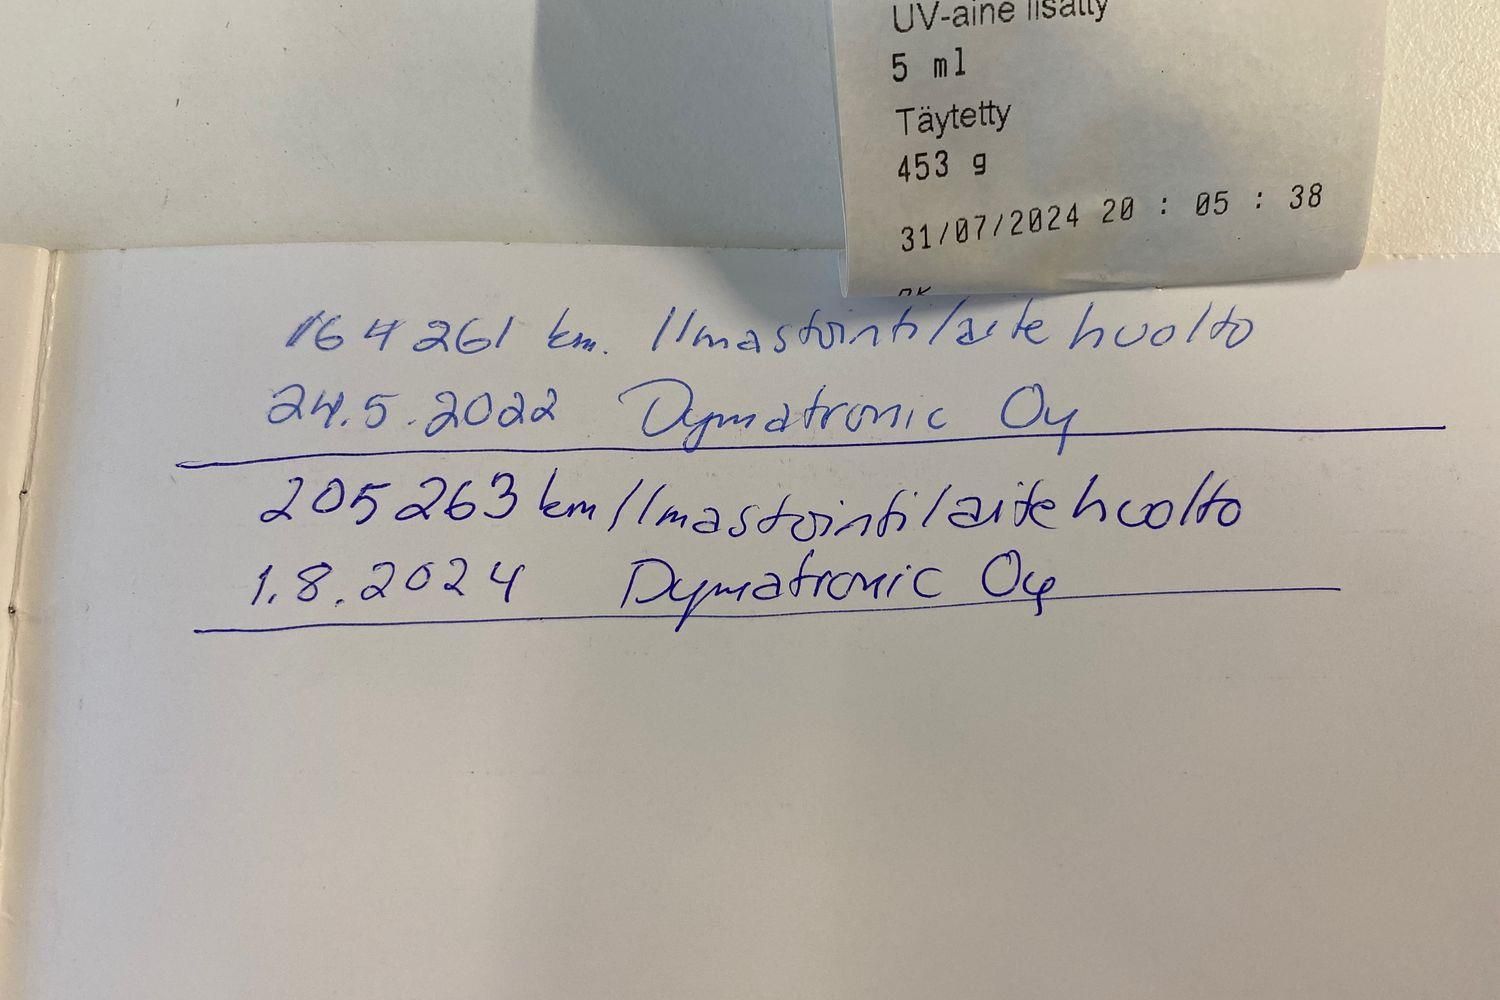 UV-aine lisätty
5 ml
Täytetty
453 g
31/07/2024 20 : 05 : 38
OK
164 261 km. Ilmastointilaite huolto
24.5.2022 Dymatronic Oy
205 263 km Ilmastointilaite huolto
1.8.2024 Dymatronic Oy